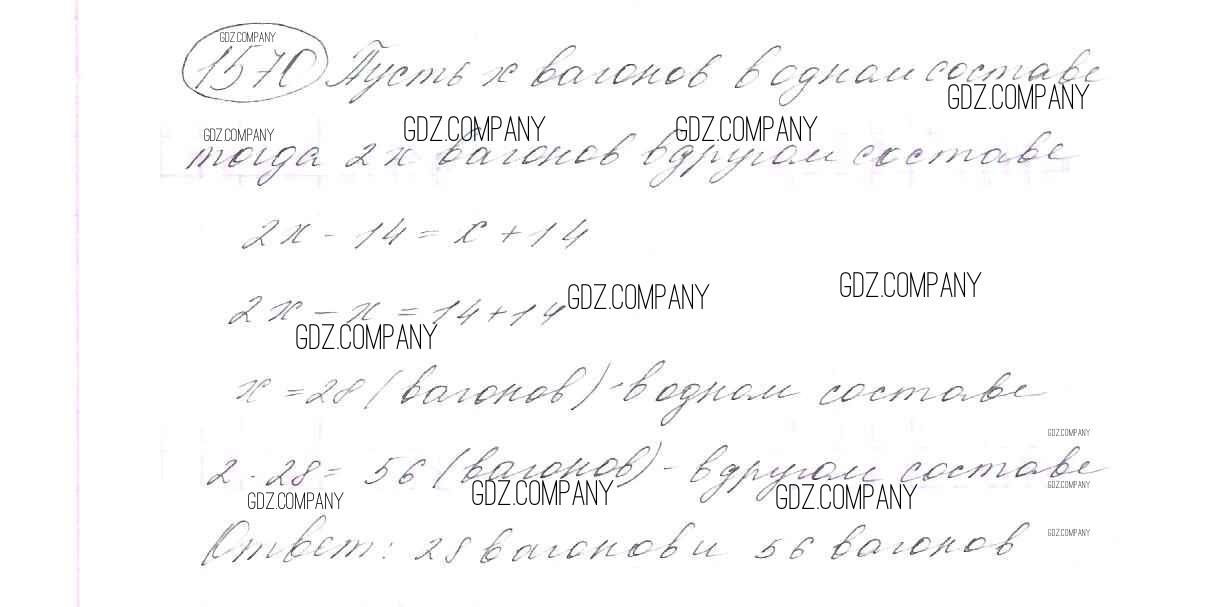 GDZ.COMPANY
1570 Пусть x вагонов в одном составе
GDZ.COMPANY
GDZ.COMPANY GDZ.COMPANY GDZ.COMPANY
тогда 2x вагонов в другом составе
2x - 14 = x + 14
GDZ.COMPANY GDZ.COMPANY
2x - x = 14 + 14
GDZ.COMPANY
x = 28 (вагонов) - в одном составе
GDZ.COMPANY
2 · 28 = 56 (вагонов) - в другом составе
GDZ.COMPANY GDZ.COMPANY GDZ.COMPANY GDZ.COMPANY
Ответ: 28 вагонов и 56 вагонов
GDZ.COMPANY